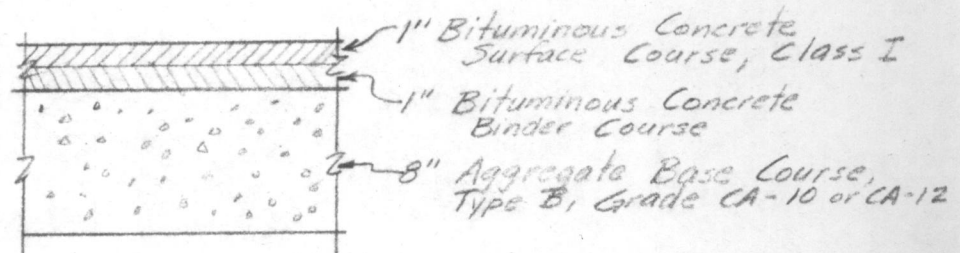 1" Bituminous Concrete
Surface Course, Class I
1" Bituminous Concrete
Binder Course
8" Aggregate Base Course,
Type B, Grade CA-10 or CA-12